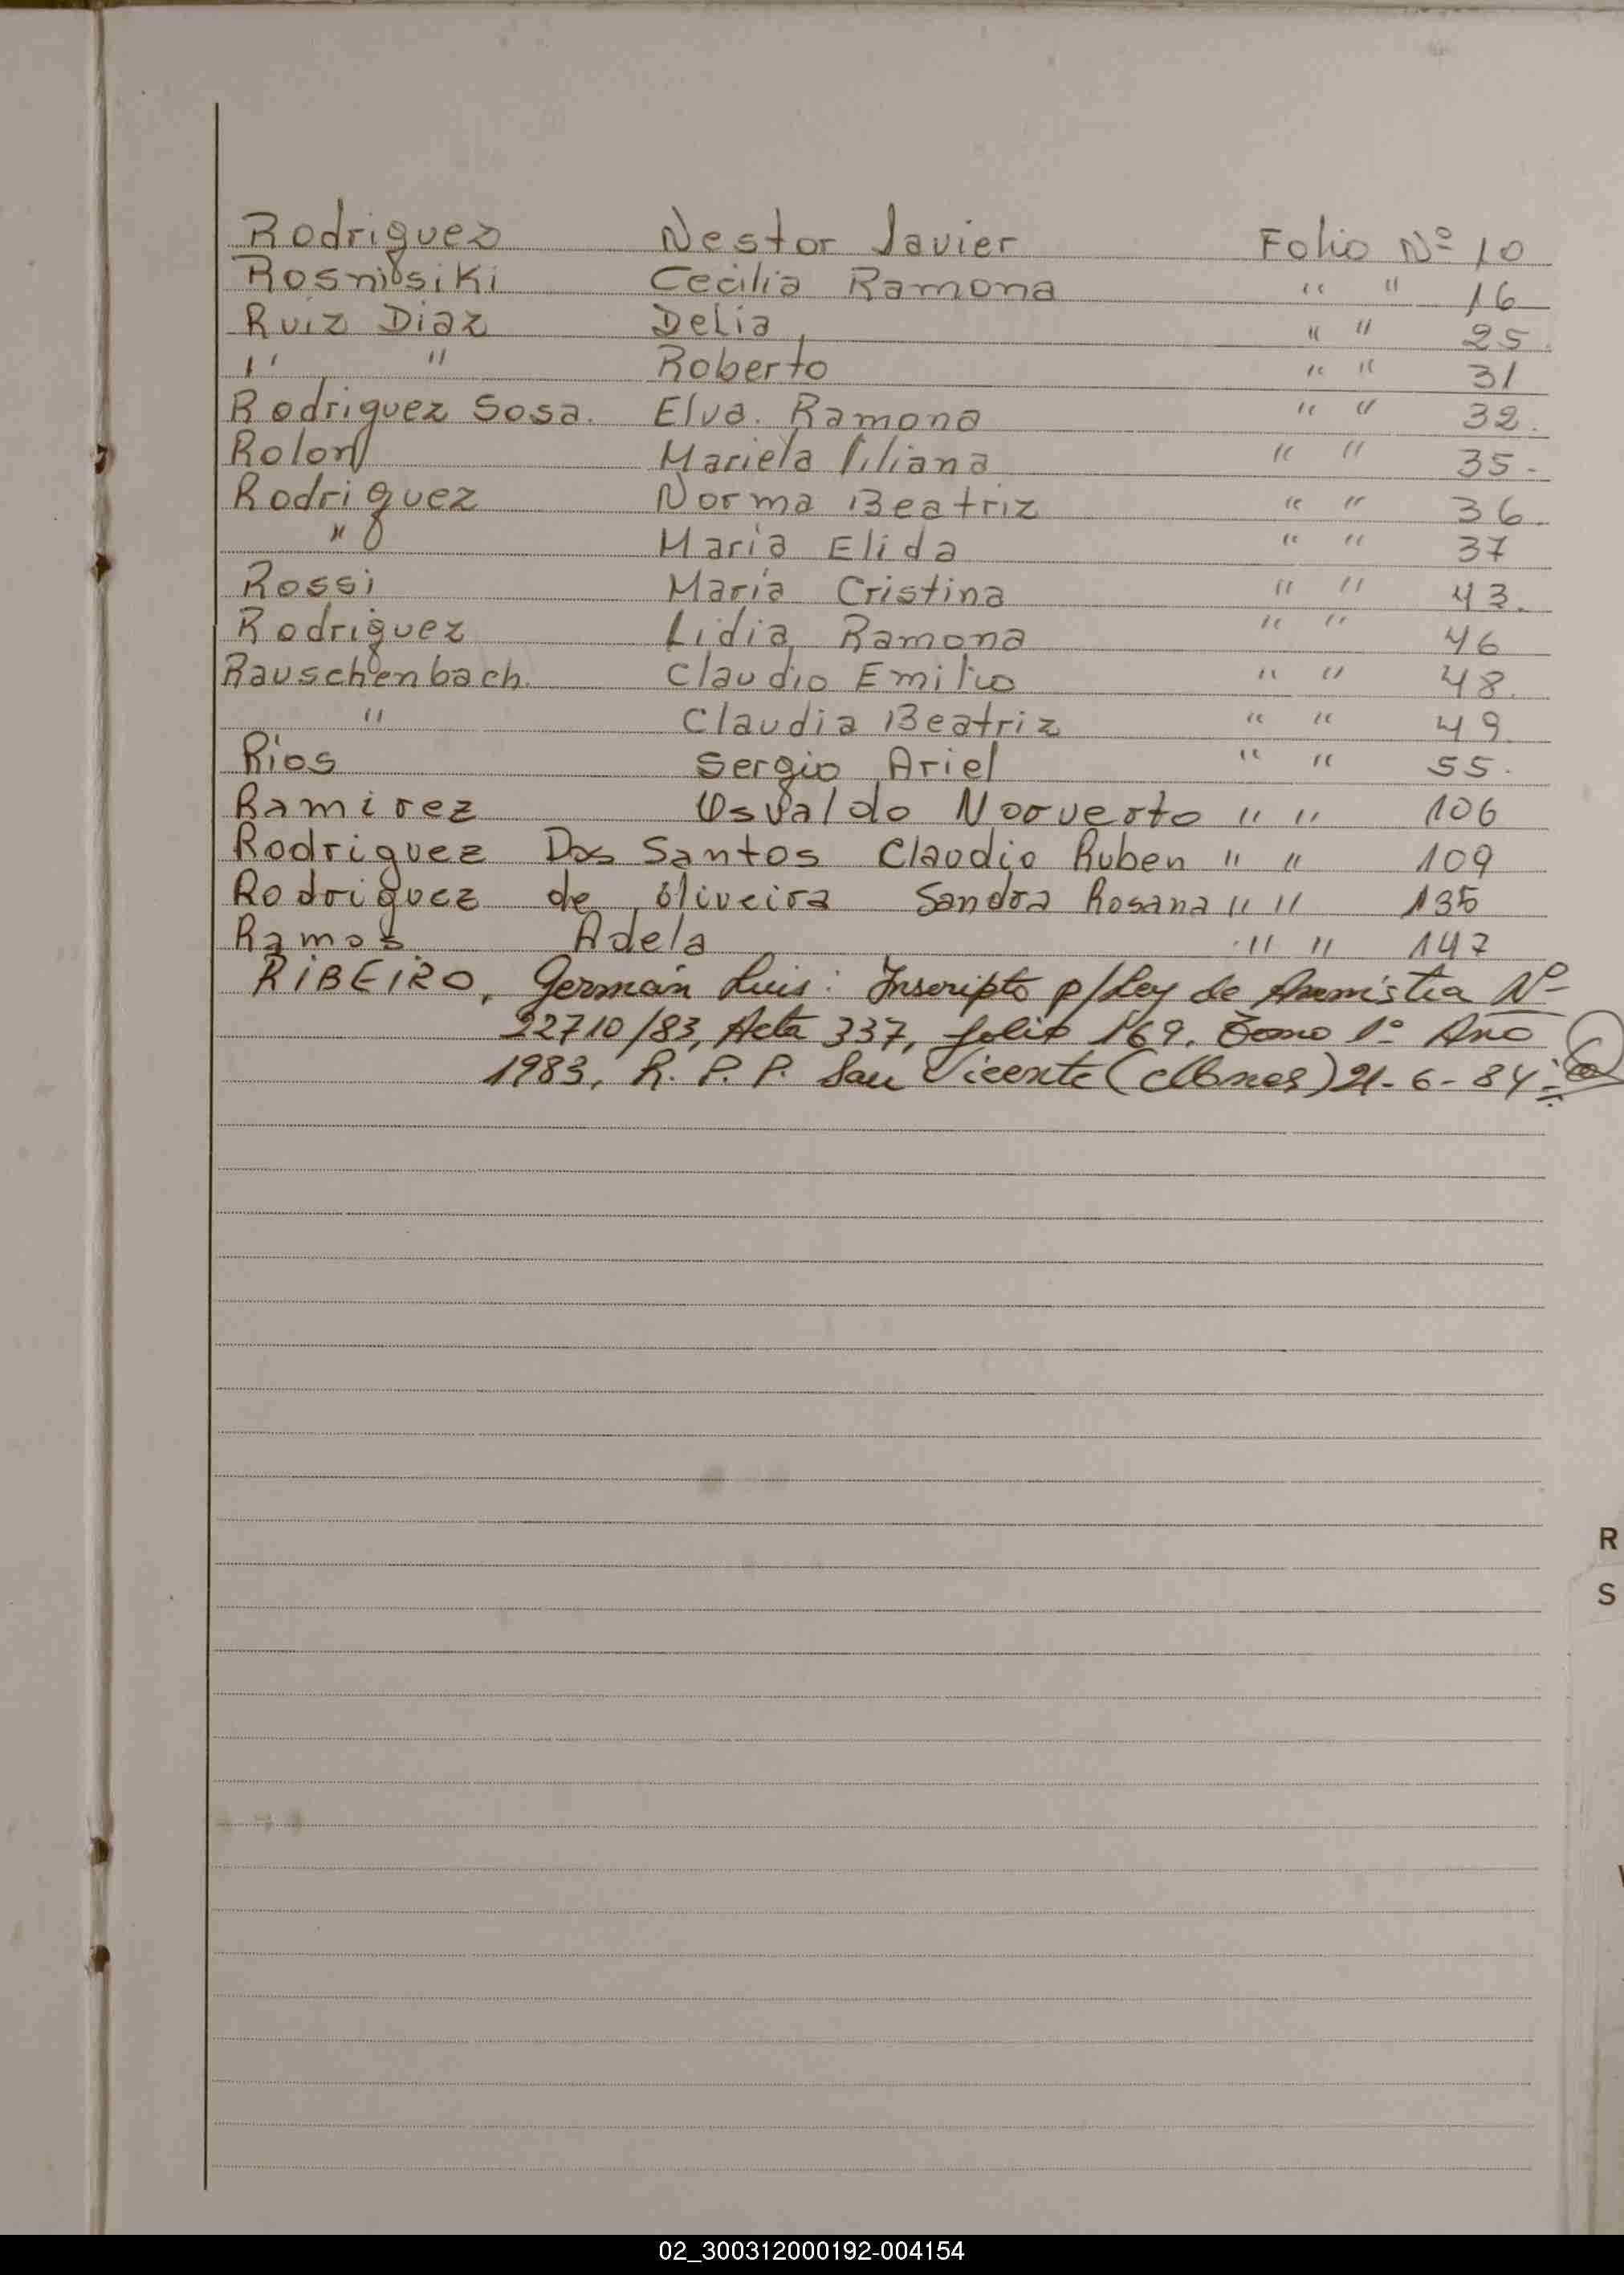 Rodriguez Nestor Javier Folio Nº 10
Rosniosiki Cecilia Ramona " " 16
Ruiz Diaz Delia " " 25
" " Roberto " " 31
Rodriguez Sosa. Elva. Ramona " " 32.
Rolon Mariela Liliana " " 35.
Rodriguez Norma Beatriz " " 36.
" Maria Elida " " 37
Rossi María Cristina " " 43.
Rodriguez Lidia Ramona " " 46
Rauschenbach. Claudio Emilio " " 48.
" Claudia Beatriz " " 49.
Ríos Sergio Ariel " " 55.
Ramirez Osvaldo Norverto " " 106
Rodriguez Dos Santos Claudio Ruben " " 109
Rodriguez de Oliveira Sandra Rosana " " 135
Ramos Adela " " 147
RIBEIRO, Germán Luis: Inscripto p/Ley de Amnistia Nº
22710/83, Acta 337, folio 169. Tomo 1º Año
1983, R. P. P. San Vicente (Mnes) 21-6-84
R
S
02_300312000192-004154